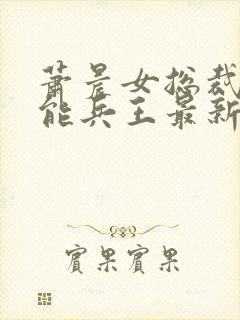 萧晨女总裁
能兵王最新
宾果宾果